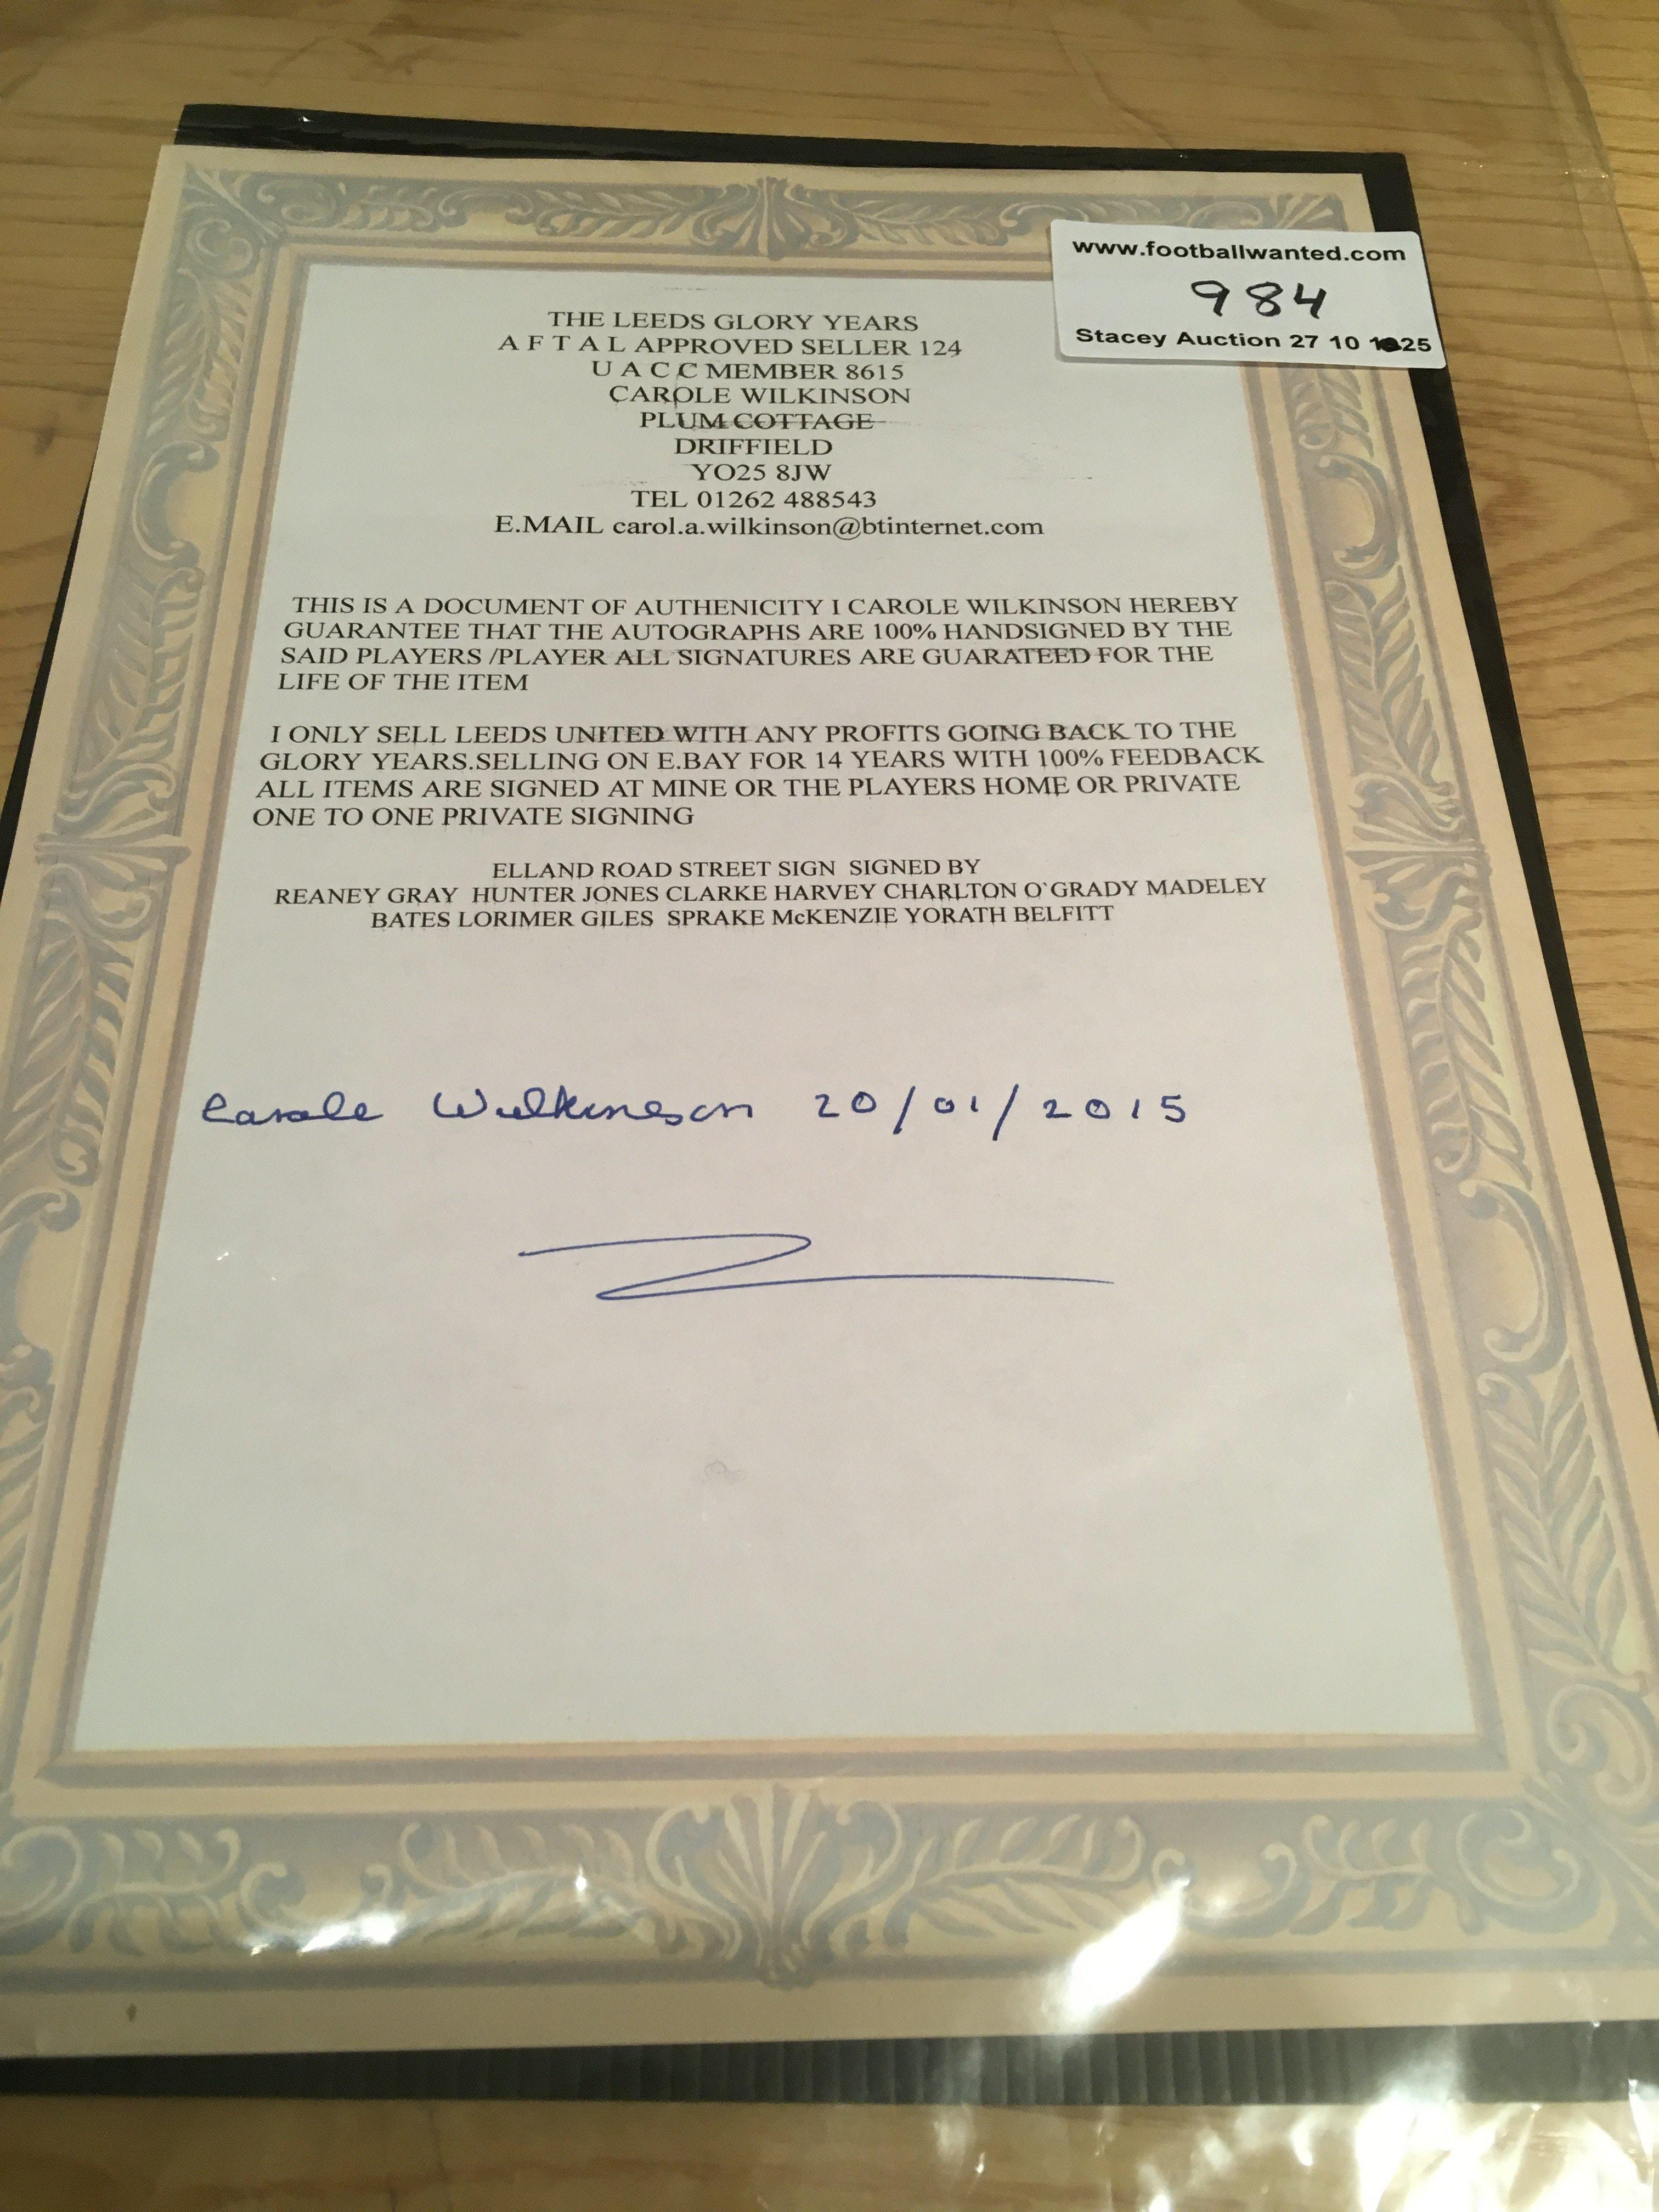 www.footballwanted.com
984
Stacey Auction 27 10 25
THE LEEDS GLORY YEARS
A F T A L APPROVED SELLER 124
U A C C MEMBER 8615
CAROLE WILKINSON
PLUM COTTAGE
DRIFFIELD
YO25 8JW
TEL 01262 488543
E.MAIL carol.a.wilkinson@btinternet.com
THIS IS A DOCUMENT OF AUTHENICITY I CAROLE WILKINSON HEREBY
GUARANTEE THAT THE AUTOGRAPHS ARE 100% HANDSIGNED BY THE
SAID PLAYERS /PLAYER ALL SIGNATURES ARE GUARATEED FOR THE
LIFE OF THE ITEM
I ONLY SELL LEEDS UNITED WITH ANY PROFITS GOING BACK TO THE
GLORY YEARS.SELLING ON E.BAY FOR 14 YEARS WITH 100% FEEDBACK
ALL ITEMS ARE SIGNED AT MINE OR THE PLAYERS HOME OR PRIVATE
ONE TO ONE PRIVATE SIGNING
ELLAND ROAD STREET SIGN SIGNED BY
REANEY GRAY HUNTER JONES CLARKE HARVEY CHARLTON O`GRADY MADELEY
BATES LORIMER GILES SPRAKE McKENZIE YORATH BELFITT
Carole Wilkinson 20/01/2015